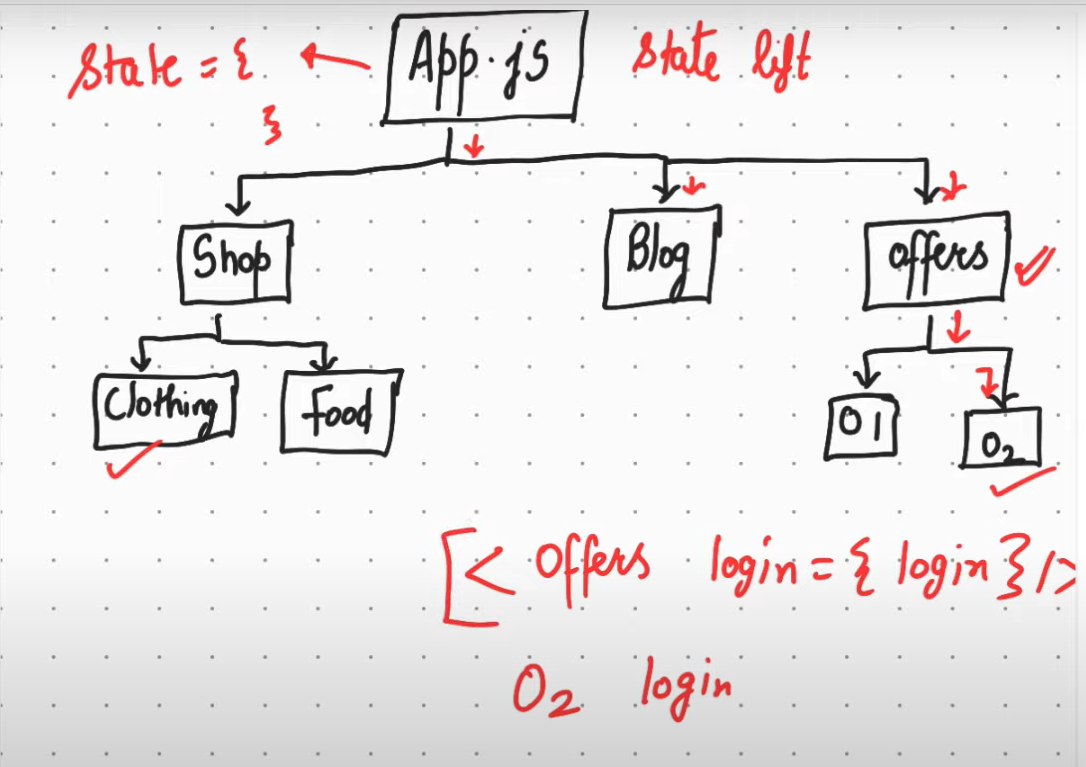 State = {
}
App.js
State lift
Shop
Blog
offers
Clothing
food
O1
O2
[< Offers login = { login } />
O2 login